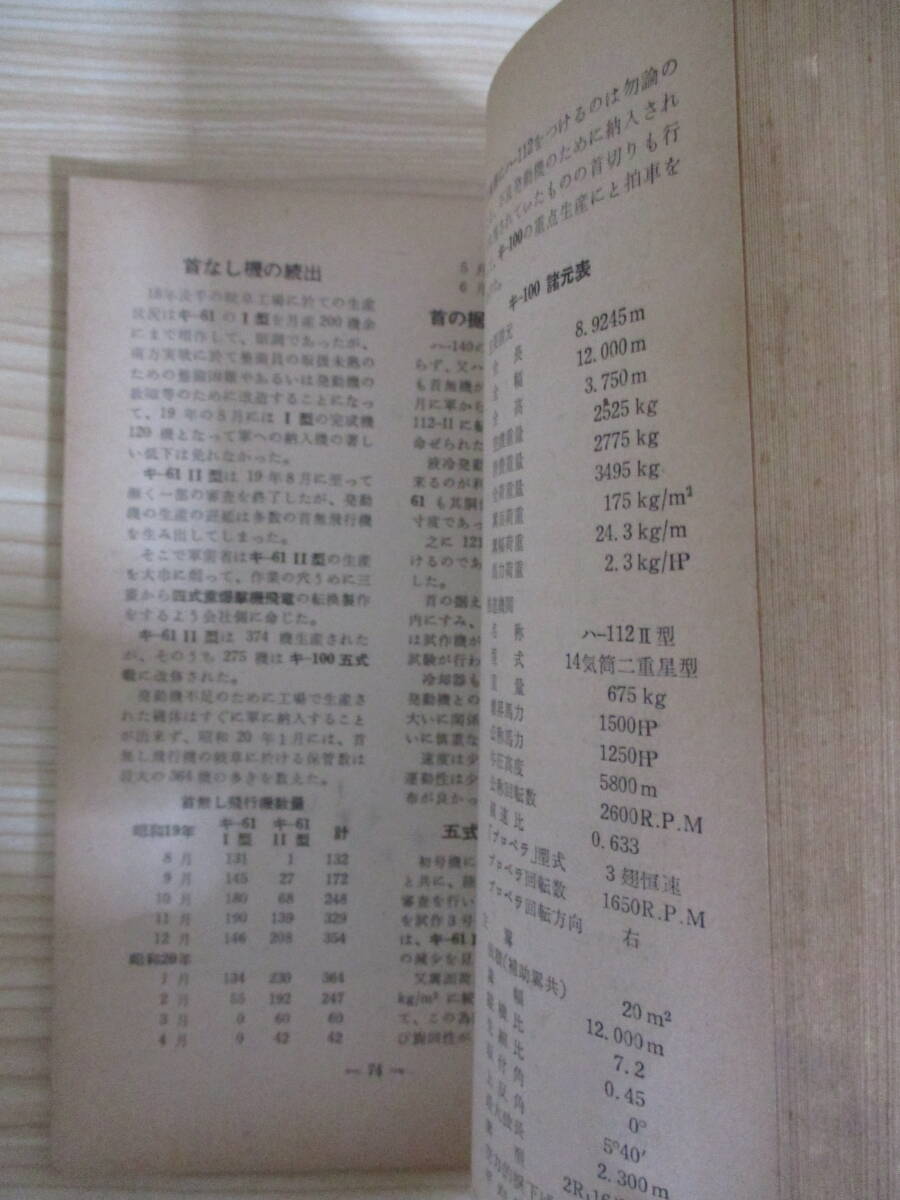 首なし機の続出
18年後半の岐阜工場に於ての生産
状況はキ-61のⅠ型を月産200機余
にまで増作して、順調であったが、
南方実戦に於て整備員の取扱未熟の
ための整備困難やあるいは発動機の
故障等のために改造することになっ
て、19年の8月にはⅠ型の完成機
120機となって軍への納入機の著し
い低下は免れなかった。
キ-61 II型は19年8月に至って
漸く一部の審査を終了したが、発動
機の生産の遅延は多数の首無飛行機
を生み出してしまった。
そこで軍需省はキ-61 II型の生産
を大巾に削って、作業の穴うめに三
菱から四式重爆撃機飛竜の転換製作
をするよう会社側に命じた。
キ-61 II型は374機生産された
が、そのうち275機はキ-100五式
戦に改修された。
発動機不足のために工場で生産さ
れた機体はすぐに軍に納入すること
が出来ず、昭和20年1月には、首
無し飛行機の岐阜に於ける保管数は
最大の364機の多きを数えた。
首無し飛行機数量
昭和19年 キ-61 Ⅰ型 キ-61 II型 計
8月 131 1 132
9月 145 27 172
10月 180 68 248
11月 190 139 329
12月 146 208 354
昭和20年
1月 134 230 364
2月 55 192 247
3月 0 60 60
4月 0 42 42
— 74 —
5月
6月
首の据
ハ-140の
らず、又ハ
も首無機が
月に軍から
112-IIに
命ぜられた
液冷発動
来るのが
61も其
寸度であっ
之に121
けるのであ
した。
首の据え
内にすみ、
は試作機が
試験が行わ
冷却器も
発動機との
大いに関係
いに慎重な
速度は少
運動性は少
布が良かっ
五式
初号機に
と共に、
審査を行い
を試作3号
は、キ-61 I
の減少を見
又翼面荷
kg/m²に
て、この為
び旋回性が
ハ-112をつけるのは勿論の
発動機のために納入され
されていたものの首切りも行
キ-100の重点生産にと拍車を
キ-100 諸元表
全長 8.9245m
全幅 12.000m
全高 3.750m
2525kg
2775kg
3495kg
翼面荷重 175kg/m²
翼幅荷重 24.3kg/m
馬力荷重 2.3kg/HP
名称 ハ-112Ⅱ型
型式 14気筒二重星型
重量 675kg
馬力 1500HP
公称馬力 1250HP
高度 5800m
公称回転数 2600R.P.M
減速比 0.633
「プロペラ」型式 3翅恒速
プロペラ回転数 1650R.P.M
プロペラ回転方向 右
主翼
(補助翼共) 20m²
翼幅 12.000m
縦横比 7.2
比 0.45
取付角 0°
上反角 5°40′
最大弦長 2.300m